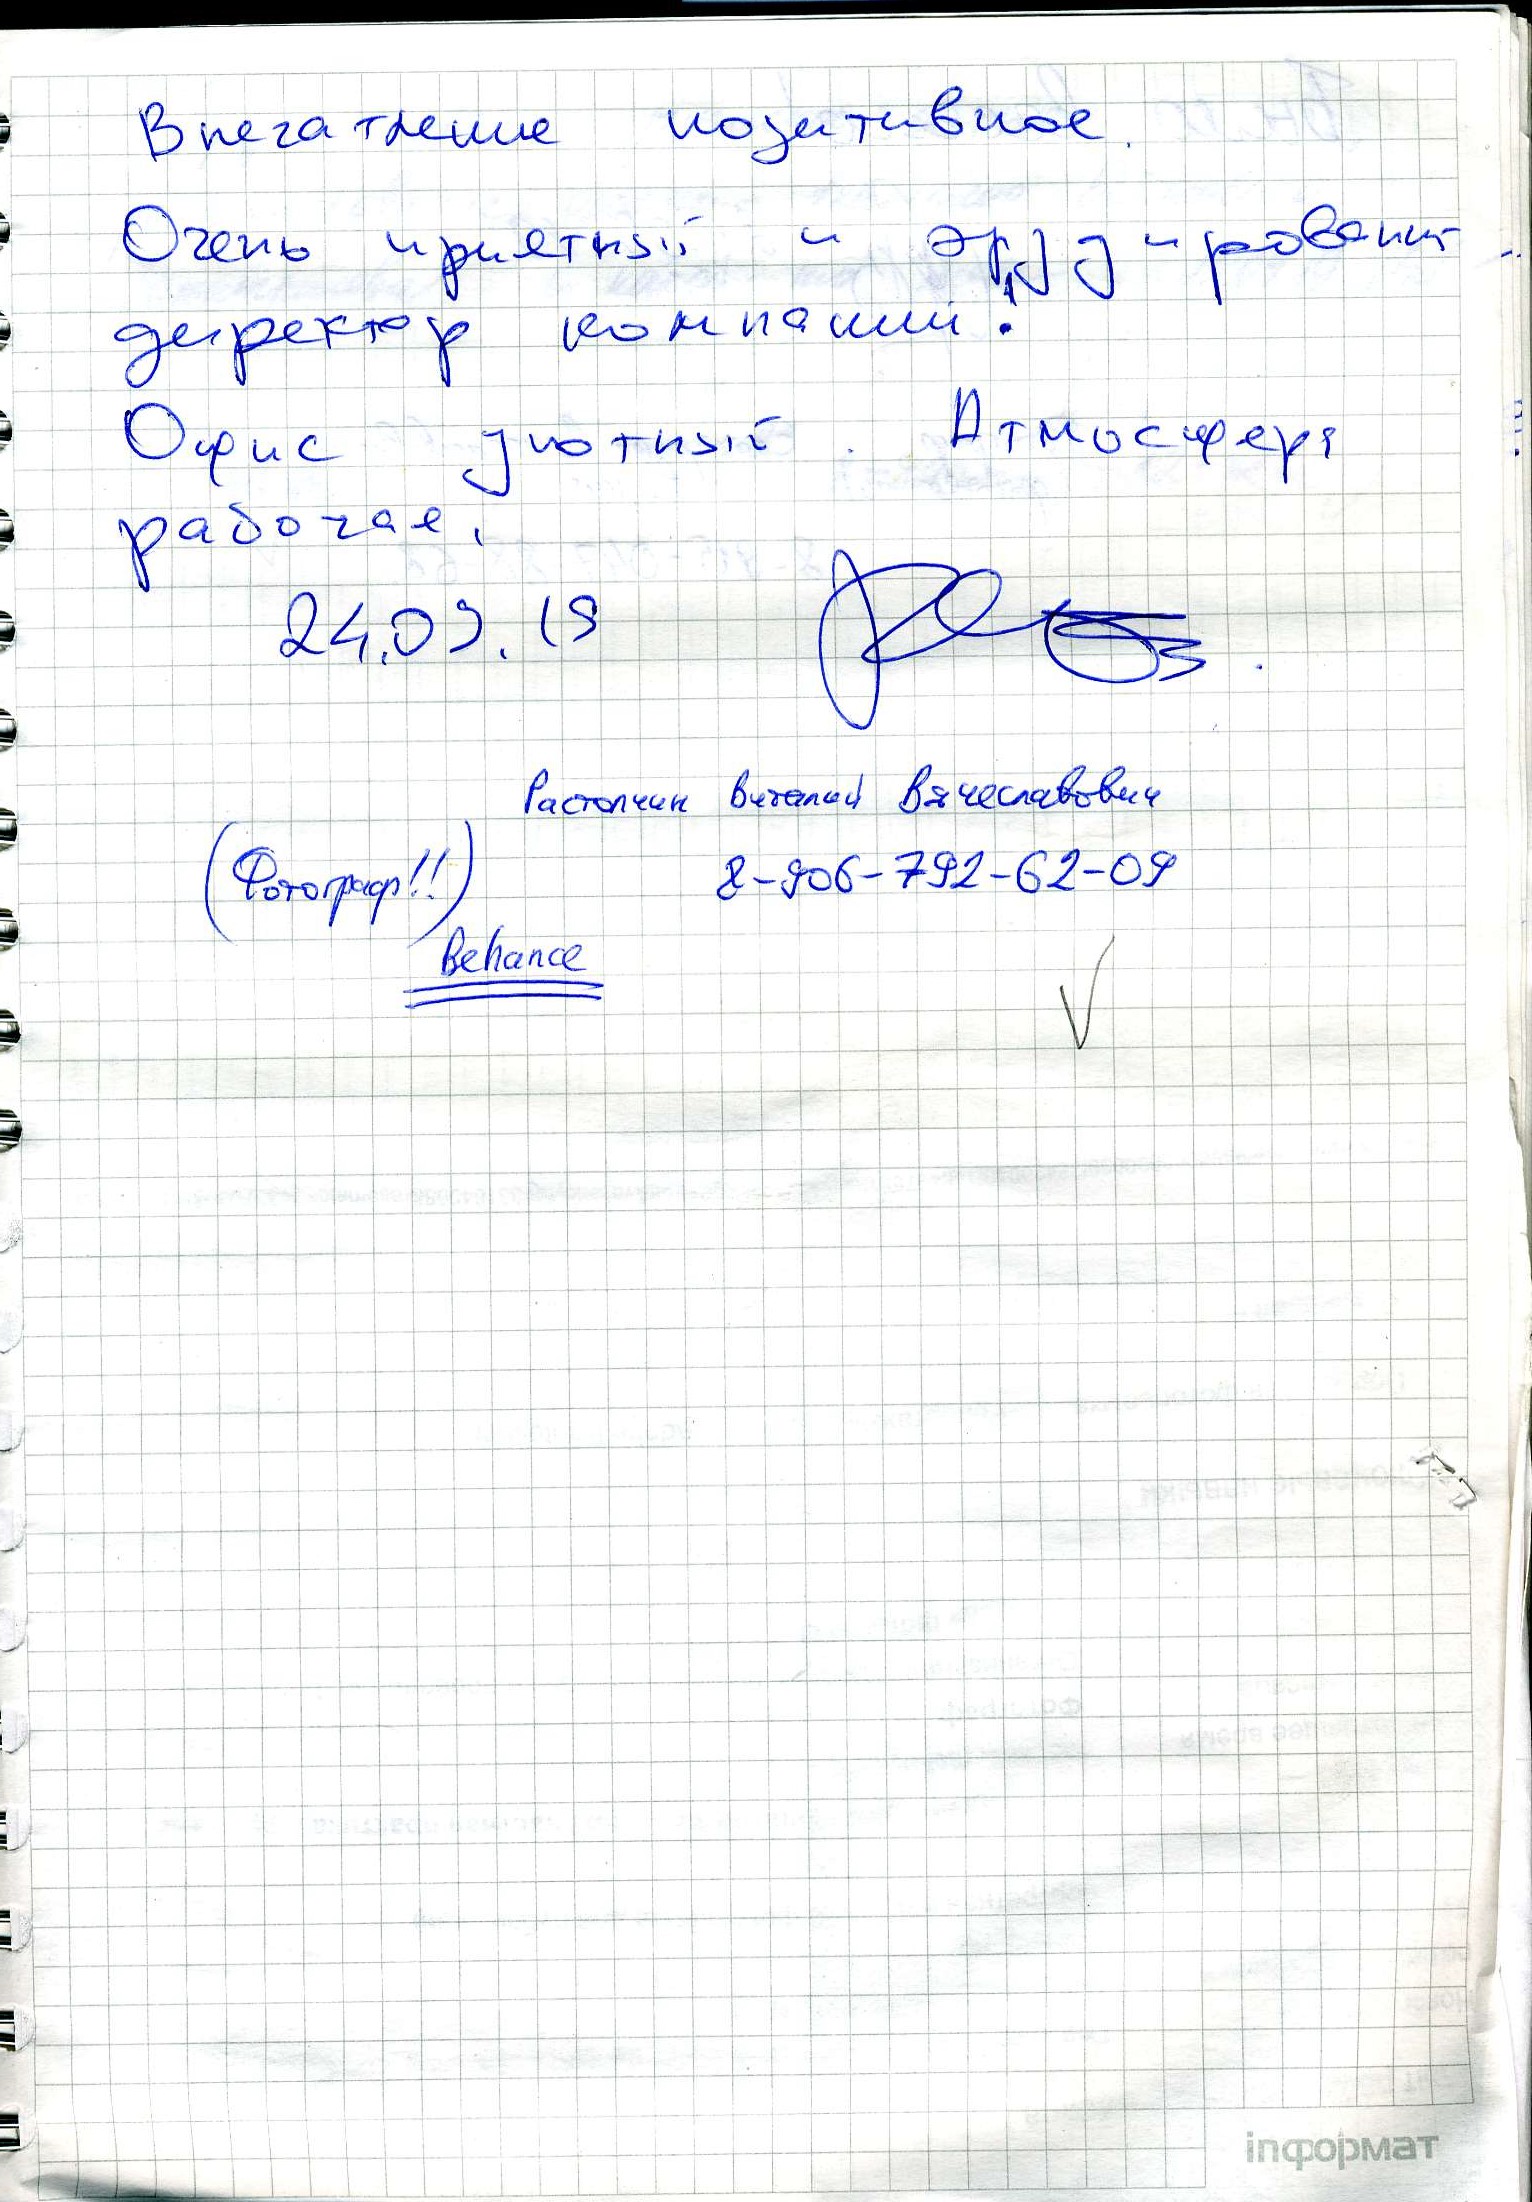 Впечатление позитивное.
Очень приятный и эрудированный
директор компании!
Офис уютный. Атмосфера
рабочая.
24.09.19
Растопчин Виталий Вячеславович
(Фотограф!!) 8-906-792-62-09
Behance
inформат